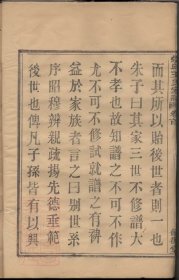 而其所以貽後世者則一也
朱子曰其家三世不修譜大
不孝也故知譜之不可不作
尤不可不修試就譜之有裨
益於家族者言之曰别世系
序昭穆辨親疎揚先德垂範
後世也俾凡子孫皆有以興